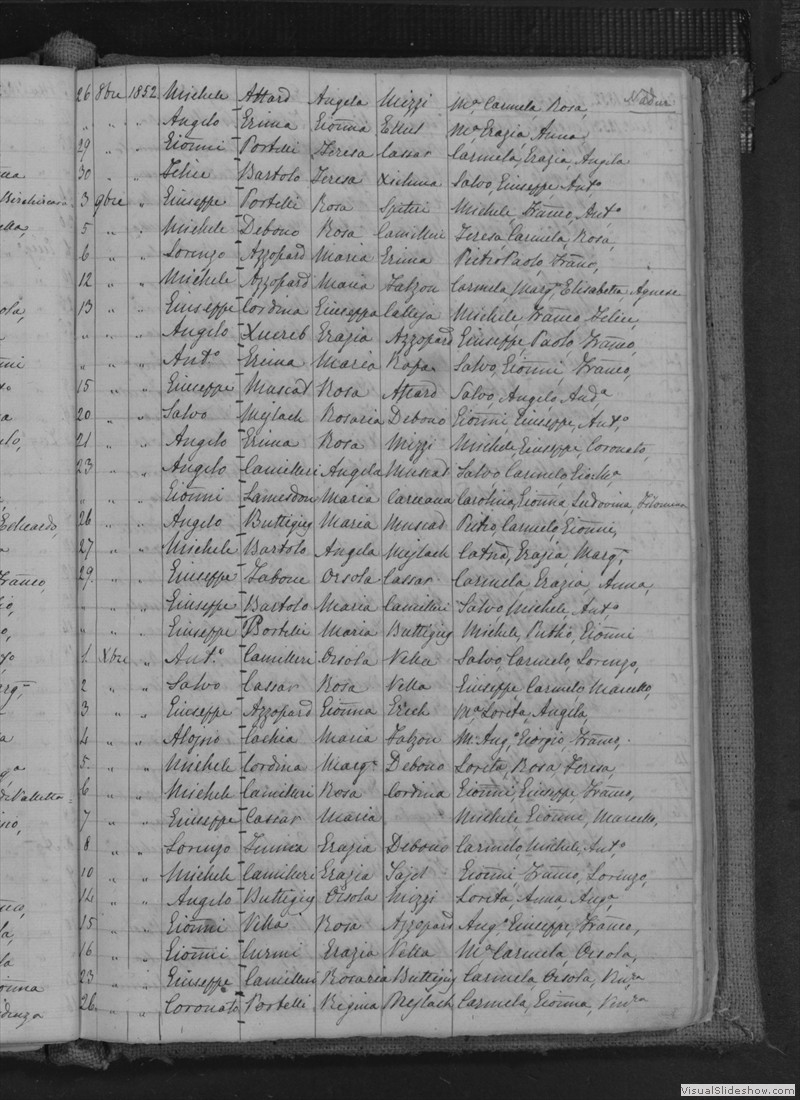 26 8bre 1852 Michele Attard Angela Mizzi Mª Carmela, Rosa, Nadur
" " " Angelo Grima Gionna Ellul Mª Grazia, Anna
29 " " Gionni Portelli Teresa Cassar Carmela, Grazia, Angela
30 " " Felice Bartolo Teresa Xichma Salvo, Giuseppe Antº
3 9bre " Giuseppe Portelli Rosa Spiteri Michele, Franco, Antº
5 " " Michele Debono Rosa Camilleri Teresa, Carmela, Rosa,
6 " " Lorenzo Azzopard Maria Grima Pietro Paolo, Franco,
12 " " Michele Azzopard Maria Falzon Carmela, Margª, Elisabetta, Agnese
13 " " Giuseppe Cordina Giuseppa Calleja Michele, Franco, Felice,
" " " Angelo Xuereb Grazia Azzopard Giuseppe, Paolo, Franco,
" " " Antº Grima Maria Rapa Salvo, Gionni, Franco,
15 " " Giuseppe Muscad Rosa Attard Salvo, Angelo, Andª
20 " " Salvo Mejlach Rosaria Debono Gionni, Giuseppe, Antº,
21 " " Angelo Grima Rosa Mizzi Michele, Giuseppe, Coronato,
23 " " Angelo Camilleri Angela Muscad Salvo, Carmelo,
" " " Gionni Lamesdon Maria Caruana Carolina, Gionna, Ludovina, Filomena
26 " " Angelo Buttigieg Maria Muscad Pietro, Carmelo, Gionni,
27 " " Michele Bartolo Angela Mejlach Catna, Grazia, Margª
29 " " Giuseppe Tabone Orsola Cassar Carmela, Grazia, Anna,
" " " Giuseppe Bartolo Maria Camilleri Salvo, Michele, Antº
" " " Giuseppe Portelli Maria Buttigieg Michele, Gionni
1 Xbre " Antº Camilleri Orsola Vella Salvo, Carmelo, Lorenzo,
2 " " Salvo Cassar Rosa Vella Giuseppe, Carmelo, Marcello,
3 " " Giuseppe Azzopard Gionna Grech Mª Loreta, Angela,
4 " " Aloysio Cachia Maria Falzon M. Angº, Giorgio, Franco,
5 " " Michele Cordina Margª Debono Loreta, Rosa, Teresa,
6 " " Michele Camilleri Rosa Cordina Gionni, Giuseppe, Franco,
7 " " Giuseppe Cassar Maria " Michele, Gionni, Marcello,
8 " " Lorenzo Grazia Debono Carmelo, Michele, Antº
10 " " Michele Camilleri Grazia Sajd Gionni, Franco, Lorenzo,
14 " " Angelo Buttigieg Orsola Mizzi Loreta, Anna, Angª
15 " " Gionni Vella Rosa Azzopard Angº, Giuseppe, Franco,
16 " " Gionni Curmi Grazia Vella Mª Carmela, Orsola,
23 " " Giuseppe Camilleri Rosaria Buttigieg Carmela, Orsola, Vinzª
26 " " Coronato Portelli Regina Mejlach Carmela, Gionna, Vinzª
VisualSlideshow.com